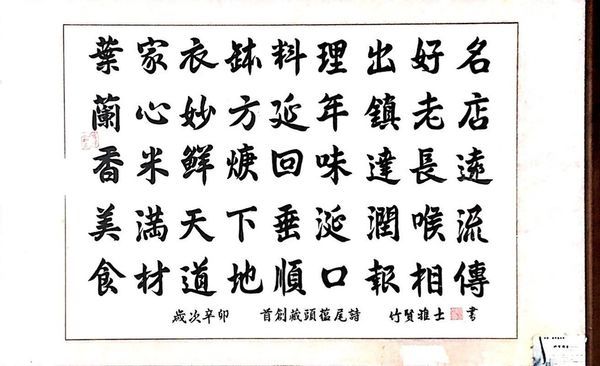 葉家衣缽料理出好名
蘭心妙方延年鎮老店
香米鮮焿回味達長遠
美滿天下垂涎潤喉流
食材道地順口報相傳
歲次辛卯 首創藏頭尾詩 竹賢雅士 書